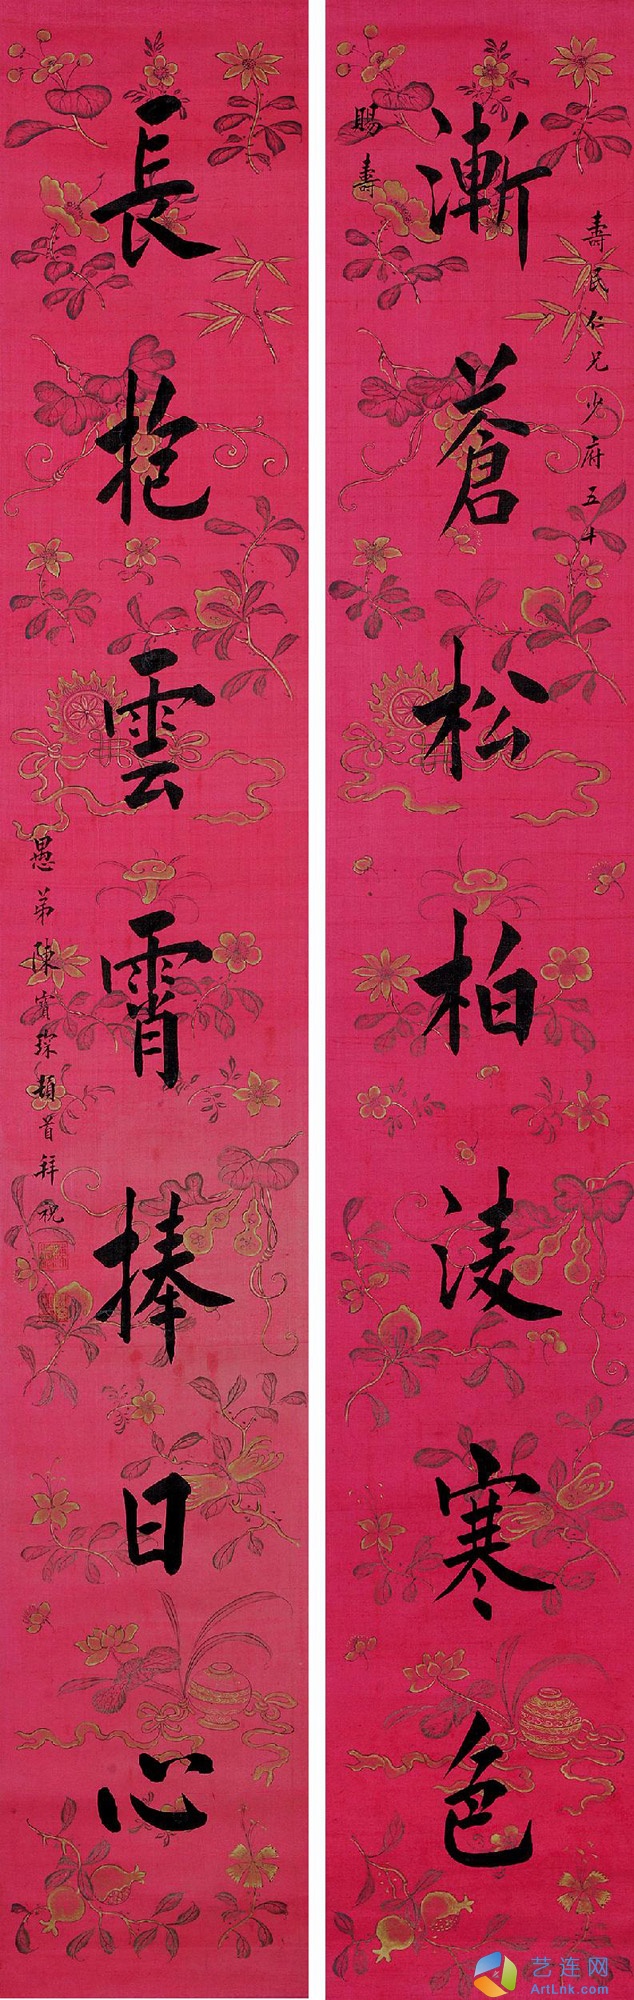 壽民仁兄少府五十
漸蒼松柏凌寒色
賜壽
長抱雲霄捧日心
愚弟陳寶琛頓首拜祝
艺连网
ArtLnk.com